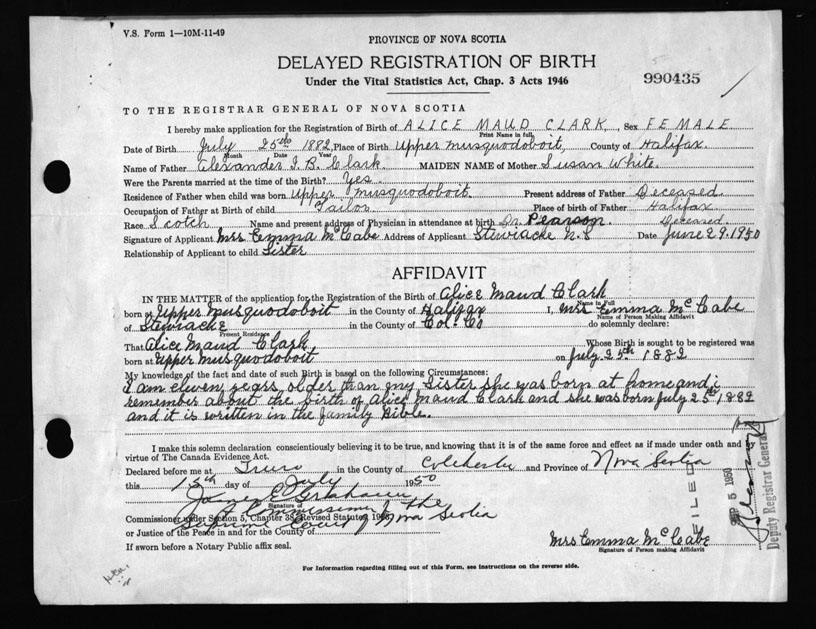 V.S. Form 1—10M-11-49
PROVINCE OF NOVA SCOTIA
DELAYED REGISTRATION OF BIRTH
Under the Vital Statistics Act, Chap. 3 Acts 1946
990435
TO THE REGISTRAR GENERAL OF NOVA SCOTIA
I hereby make application for the Registration of Birth of ALICE MAUD CLARK, Sex FEMALE
Print Name in full
Date of Birth July 25th 1882, Place of Birth Upper Musquodoboit, County of Halifax.
Month Date Year
Name of Father Alexander B. Clark. MAIDEN NAME of Mother Susan White.
Were the Parents married at the time of the Birth? Yes.
Residence of Father when child was born Upper Musquodoboit. Present address of Father Deceased
Occupation of Father at Birth of child Tailor Place of birth of Father Halifax
Race Scotch Name and present address of Physician in attendance at birth Dr. Pearson. Deceased.
Signature of Applicant Mrs Emma McCabe Address of Applicant Stewiacke N.S Date June 29.1950
Relationship of Applicant to child Sister
AFFIDAVIT
IN THE MATTER of the application for the Registration of the Birth of Alice Maud Clark
Name in Full
born at Upper Musquodoboit in the County of Halifax I, Mrs Emma McCabe
Name of Person Making Affidavit
of Stewiacke in the County of Col. Co do solemnly declare:
Present Residence
That Alice Maud Clark, Whose Birth is sought to be registered was
born at Upper Musquodoboit on July 25th 1882
My knowledge of the fact and date of such Birth is based on the following Circumstances:
I am eleven years older than my Sister she was born at home and i
remember about the birth of Alice Maud Clark and she was born July 25th 1882
and it is written in the family Bible.
I make this solemn declaration conscientiously believing it to be true, and knowing that it is of the same force and effect as if made under oath and by
virtue of The Canada Evidence Act.
Declared before me at Truro in the County of Colchester and Province of Nova Scotia
this 15th day of July 1950
James E.
Signature of
A Commissioner of the
Commissioner under Section 5, Chapter 38, Revised Statutes 1923
Supreme Court of Nova Scotia
or Justice of the Peace in and for the County of
If sworn before a Notary Public affix seal.
Mrs Emma McCabe
Signature of Person making Affidavit
For Information regarding filling out of this Form, see instructions on the reverse side.
FILED
SEP 5 1950
Deputy Registrar General